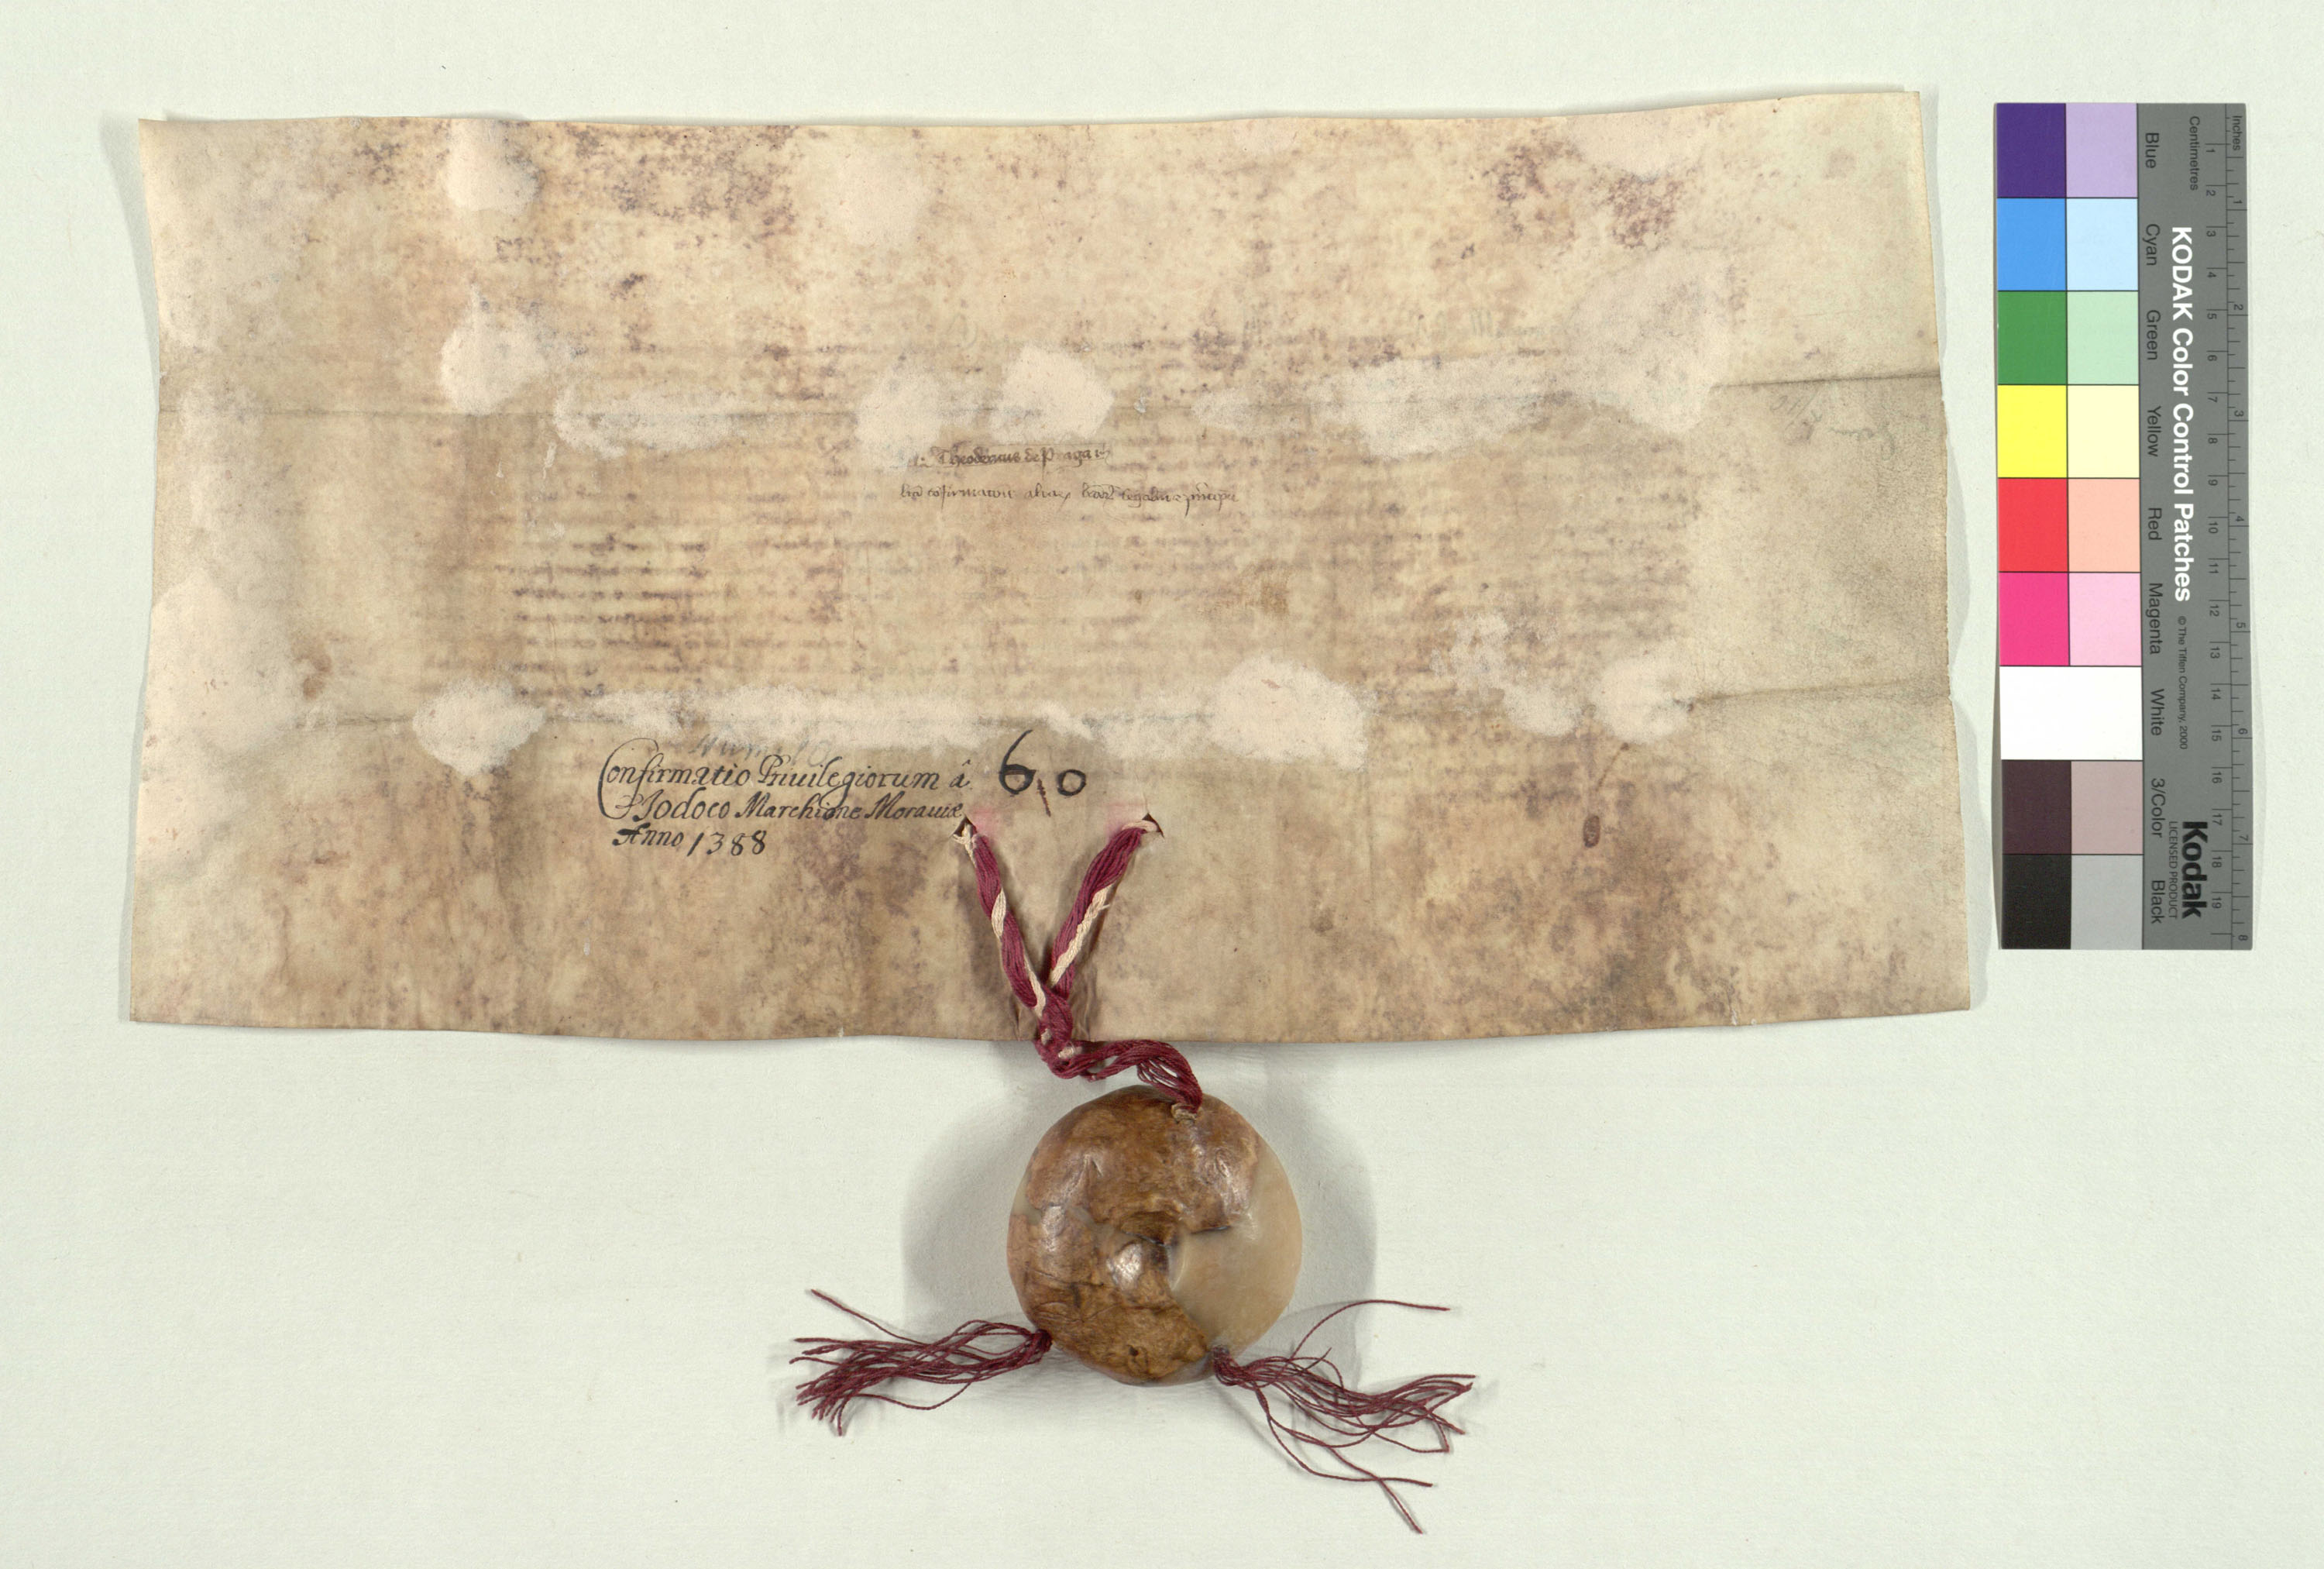 Theodericus de Praga
Confirmatio Priuilegiorum â
Jodoco Marchione Morauiæ
Anno 1388
60
Inches
Centimetres
1 2 3 4 5 6 7 8 9 10 11 12 13 14 15 16 17 18 19
1 2 3 4 5 6 7 8
KODAK Color Control Patches
© The Tiffen Company, 2000
Kodak
LICENSED PRODUCT
Blue
Cyan
Green
Yellow
Red
Magenta
White
3/Color
Black